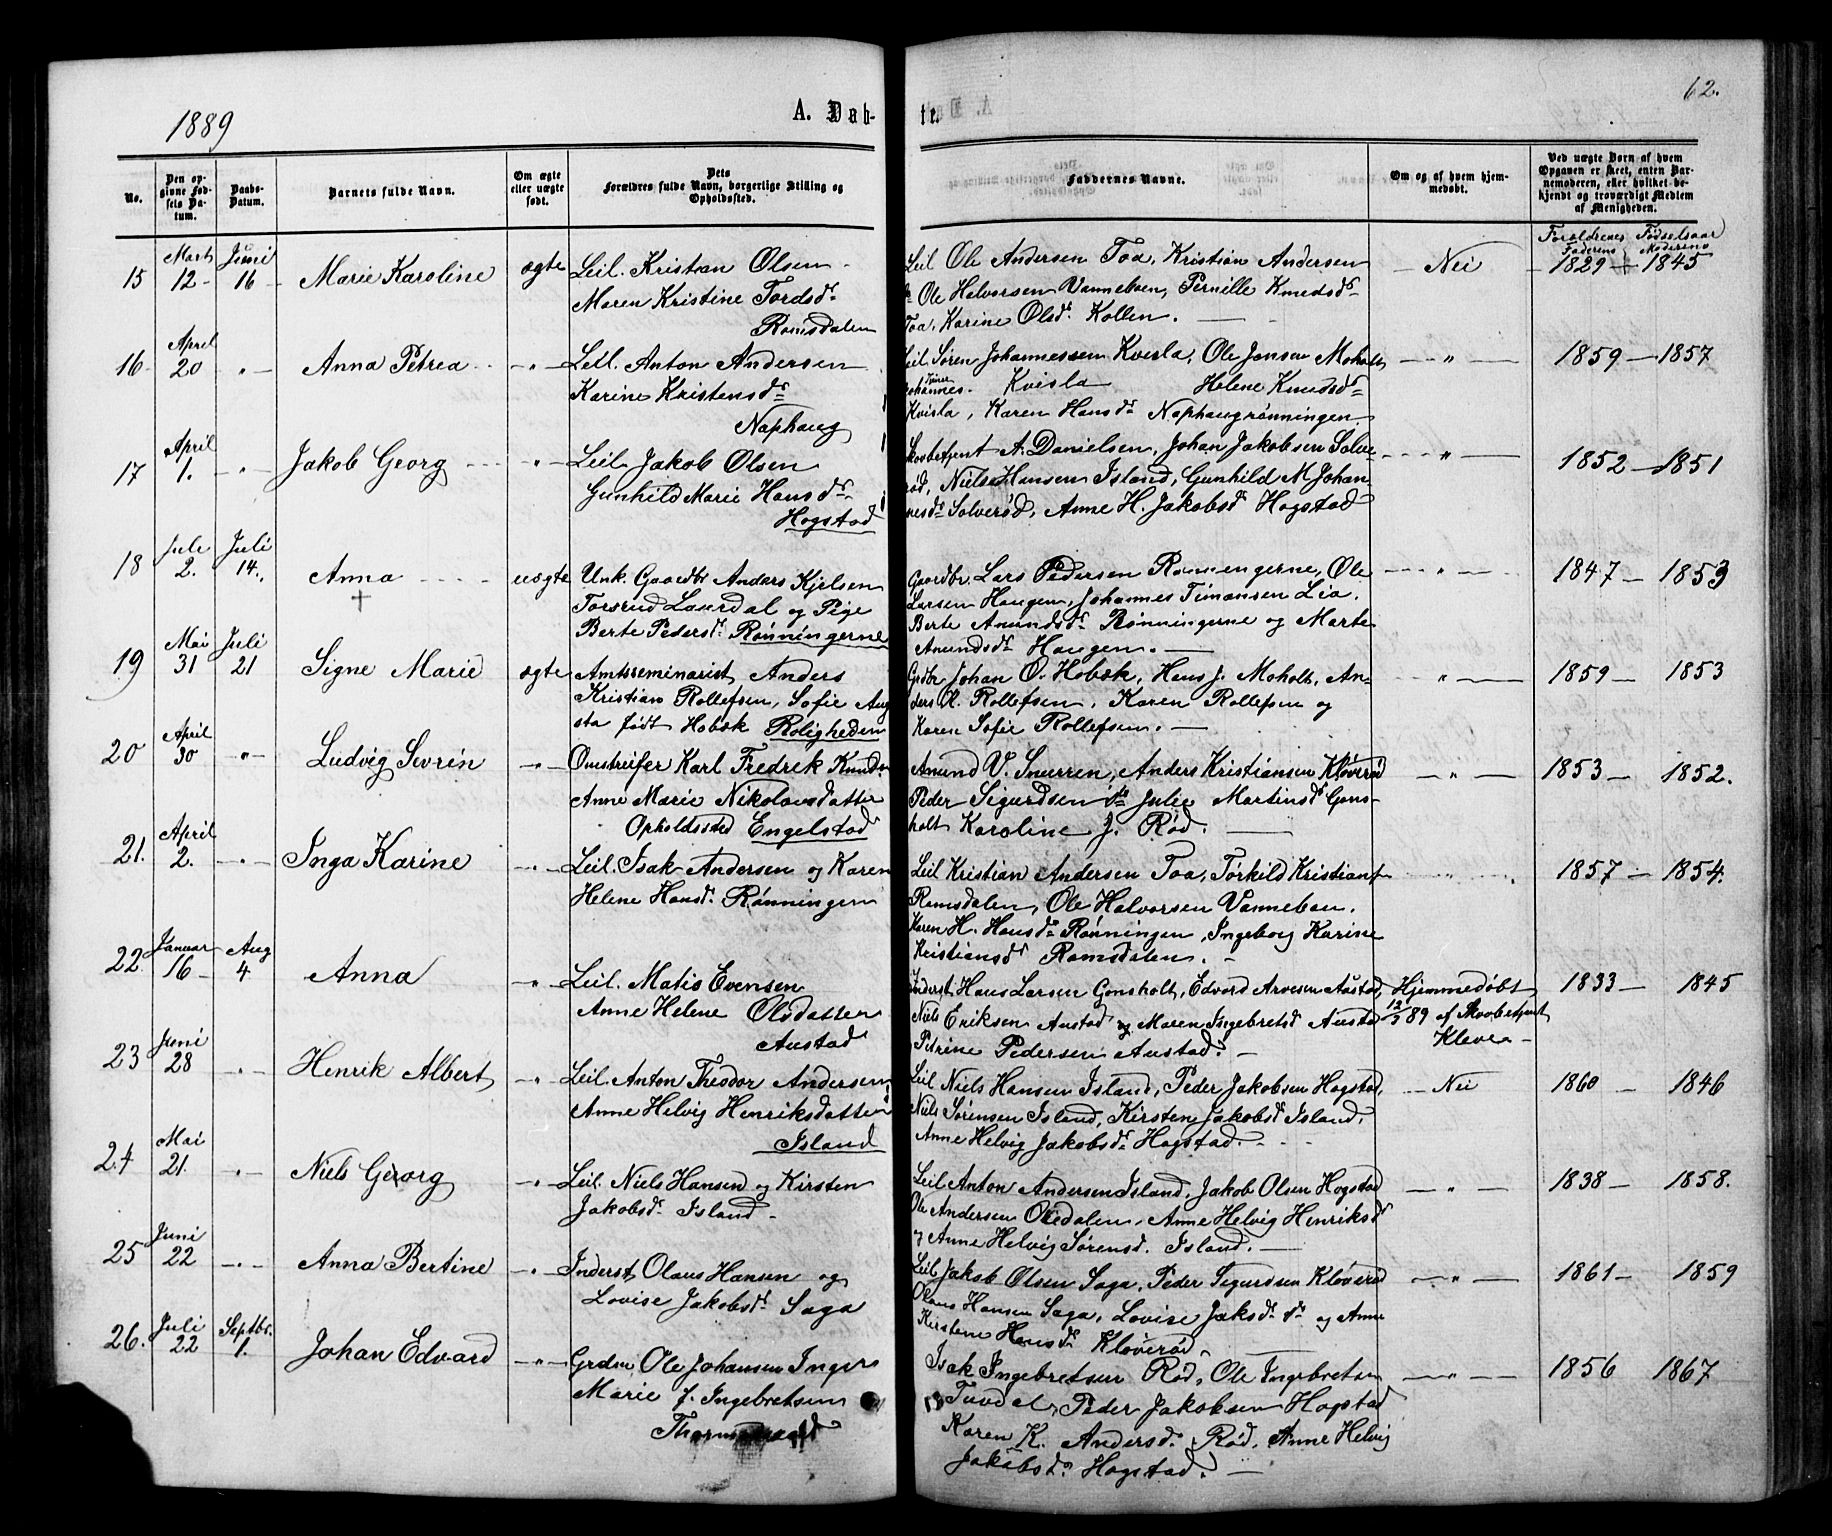 1889
A. Døb-
te.
62.
No.
Den op-
givne Fød-
sels Da-
tum.
Daabs-
Datum.
Barnets fulde Navn.
Om ægte
eller uægte
født.
Dets
Forældres fulde Navn, borgerlige Stilling og
Opholdssted.
Faddernes Navne.
Om og af hvem hjem-
medøbt.
Ved uægte Børn af hvem
Opgaven er skeet, enten Bar-
nemoderen, eller hvilket be-
kjendt og troværdigt Medlem
af Menigheden.
Forældrenes Fødselsaar
Faderens Moderens
15 Marts 12 - Juni 16 - Marie Karoline ægte
Leil. Kristian Olsen
Maren Kristine Tordsd.
Ramsdalen
Leil Ole Andersen Toa, Kristian Andersen
do Ole Halvorsen Vanneboen, Pernille Knudsd.
Toa, Karine Olsd. Kollen.
- Nei - 1829 - 1845
16 - April 20 " - Anna Petrea - " -
Leil. Anton Andersen
Karine Kristensd.
Naphaug
Leil Søren Johannessen Kvisla, Ole Jensen Moholt,
Johannes. Kvisla Helene Knudsd.
Kvisla, Karen Hansd. Naphaugrønningen
- " - 1859 - 1857
17 April 1. " - Jakob Georg - " -
Leil. Jakob Olsen
Gunhild Marie Hansd.
Hogstad
Skovbetjent A. Danielsen, Johan Jakobsen Solve-
rød, Niels Hansen Island, Gunhild M Johan-
nesd. Solverød, Anne H. Jakobsd. Hogstad
- " - 1852 - 1851
18 Juli 2. Juli 14. Anna + uægte
Unk. Gaardbr Anders Kjelsen
Torsrud Laurdal og Pige
Berte Pedersd. Rønningerne
Gaardbr. Lars Pedersen Rønningerne, Ole
Larsen Haugen, Johannes Timansen Lia.
Berte Amundsd. Rønningerne og Marte
Amundsd. Haugen. -
- " - 1847 - 1853
19 Mai 31 Juli 21 Signe Marie ægte
Amtsseminarist Anders
Kristian Rollefsen, Sofie Augu
sta født Hobæk Roligheden
Grdbr Johan O. Hobæk, Hans J. Moholt, An-
ders R. Rollefsen, Karen Rollefsen og
Karen Sofie Rollefsen. -
- " - 1859 - 1853
20 April 30 - " - Ludvig Sevrin - " -
Omstreifer Karl Fredrik Knuds.
Anne Marie Nikolausdatter
Opholdssted Engelstad
Amund V. Snurren, Anders Kristiansen Kløverød
Peder Sigurdsen do Julie Martinsd. Gons-
holt Karoline J. Rød. -
- " - 1853 - 1852.
21. April 2. - " - Inga Karine - " -
Leil. Isak Andersen og Karen
Helene Hansd. Rønningen
Leil Kristian Andersen Toa, Torkild Kristians
Ramsdalen, Ole Halvorsen Vanneboen.
Karen H. Hansd. Rønningen, Ingeborg Karine
Kristiansd. Ramsdalen. -
- " - 1857 - 1854.
22. Januar 16 - Aug 4 Anna - " -
Leil. Matis Evensen
Anne Helene Olsdatter
Austad
Inderst Hans Larsen Gonsholt, Edvard Arvesen Austad,
Niels Eriksen Austad og Maren Ingebretsd Austad
Petrine Pedersen Austad. -
Hjemmedøbt
12/3 89 af Skovbetjent
Kleven -
1833 - 1845
23 Juni 28 - " - Henrik Albert - " -
Leil. Anton Theodor Andersen
Anne Helvig Henriksdatter
Island
Leil Niels Hansen Island, Peder Jakobsen Hogstad,
Niels Sørensen Island, Kirsten Jakobsd. Island.
Anne Helvig Jakobsd. Hogstad. -
- Nei 1860 - 1846
24 Mai 21. - " - Niels Georg - " -
Leil. Niels Hansen og Kirsten
Jakobsd. Island -
Leil Anton Andersen Island, Jakob Olsen Hogstad
Ole Andersen Oredalen, Anne Helvig Henriksd
og Anne Helvig Sørensd. Island. -
- " - 1838 - 1858.
25 Juni 22 - " - Anna Bertine - " -
Inderst Olaus Hansen og
Lovise Jakobsd. Saga
Leil Jakob Olsen Saga, Peder Sigurdsen Kløverød
Olaus Hansen Saga, Lovise Jaksd. do og Anne
Kirstene Hansd. Kløverød. -
- " - 1861 - 1859
26. Juli 22 Septbr. 1. Johan Edvard - " -
Grdm Ole Johansen Inger
Marie f. Ingebretsen
Isak Ingebretsen Rød, Ole Ingebretsen
Tuvdal, Peder Jakobsen Hogstad
Karen K. Andersd. Rød, Anne Helvig
Jakobsd. Hogstad. -
- " - 1856 1867